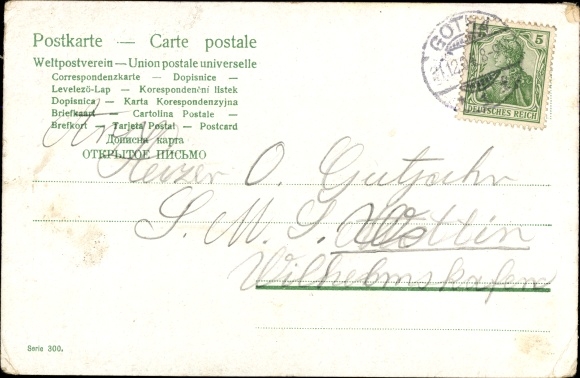 Postkarte — Carte postale
Weltpostverein — Union postale universelle
Correspondenzkarte — Dopisnice —
Levelező-Lap — Korespondenční lístek
Dopisnica — Karta Korespondenzyjna
Briefkaart — Cartolina Postale —
Brefkort — Tarjeta Postal — Postcard
Дописна карта
ОТКРЫТОЕ ПИСЬМО
5
DEUTSCHES REICH
GOT
12
Heizer O. Gutjahr
S. M. S. Wettin
Wilhelmshafen
Serie 300.